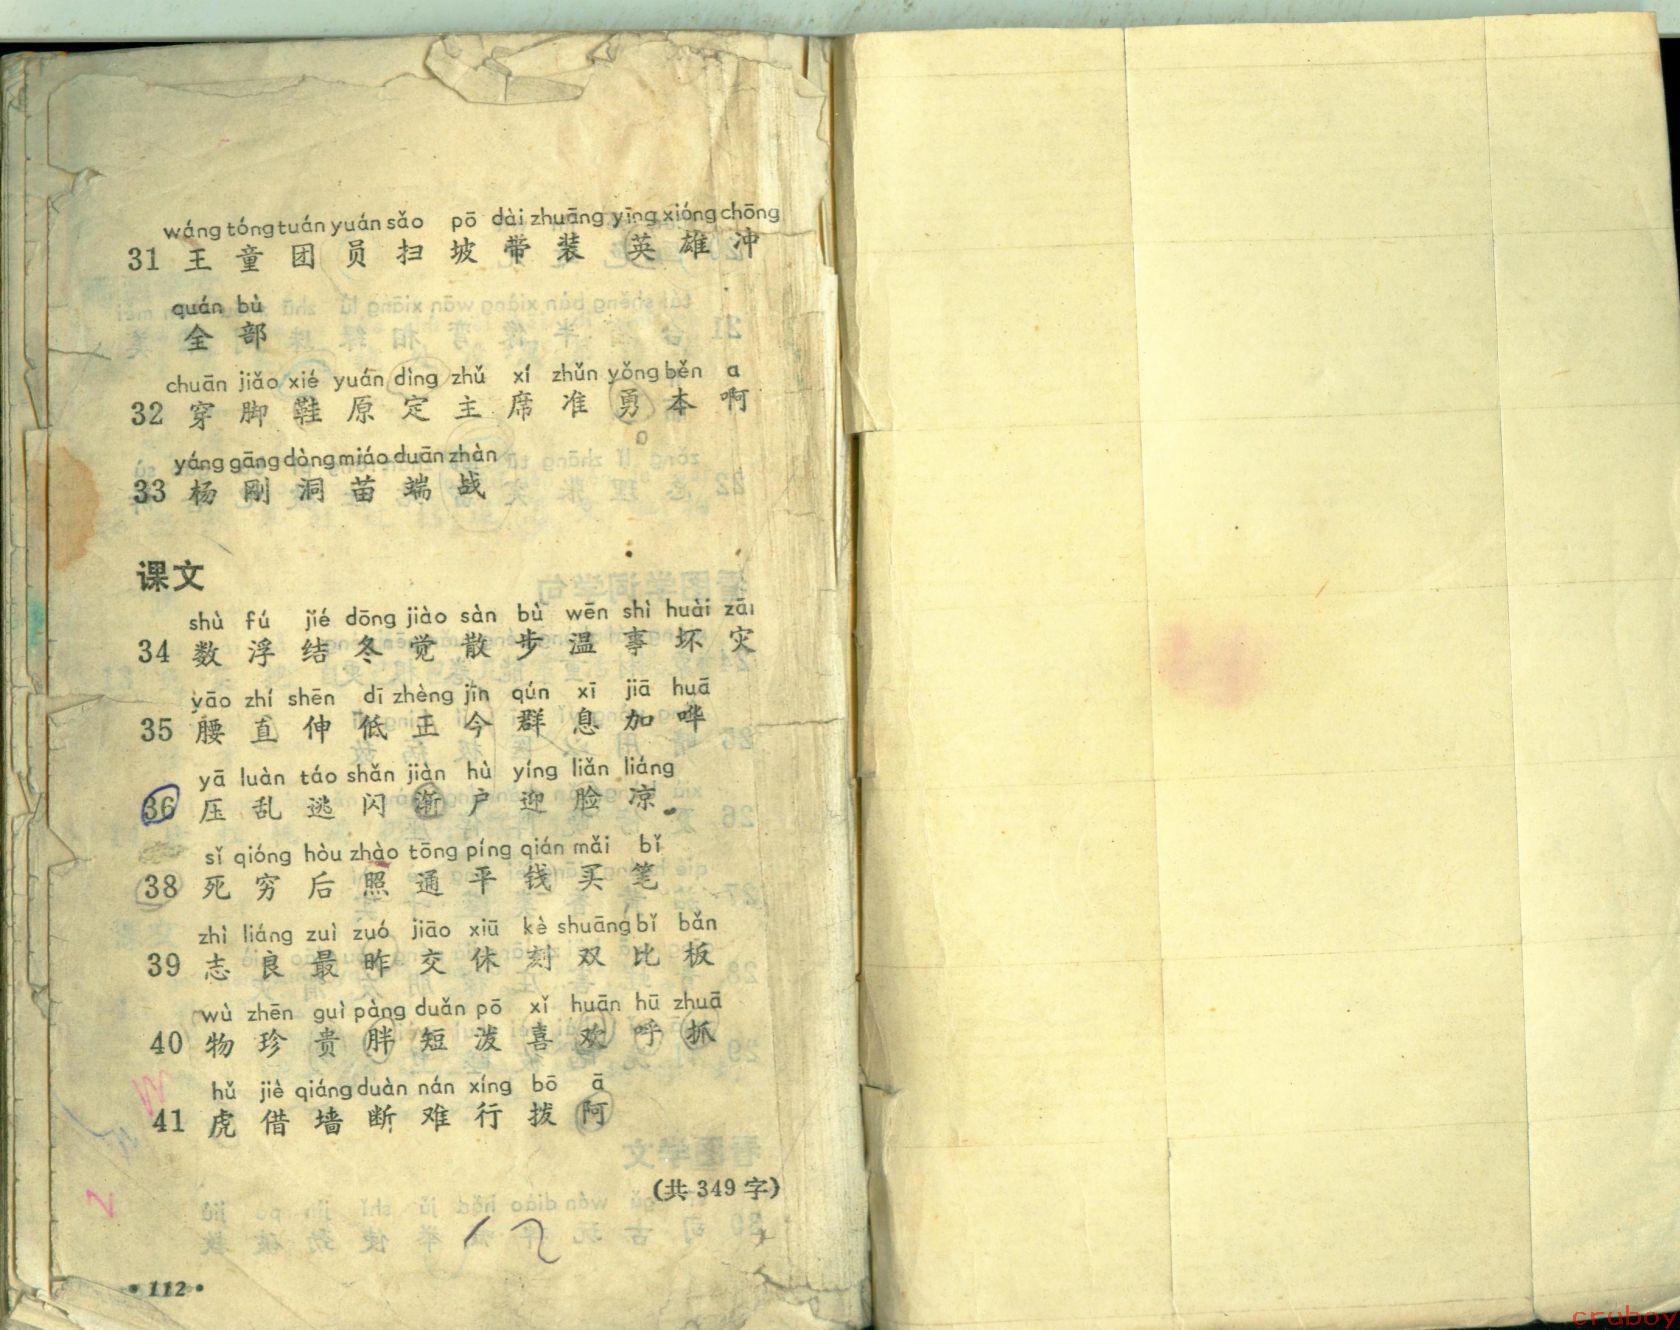 wáng tóng tuán yuán sǎo pō dài zhuāng yīng xióng chōng
31 王 童 团 员 扫 坡 带 装 英 雄 冲
quán bù
全 部
chuān jiǎo xié yuán dìng zhǔ xí zhǔn yǒng běn a
32 穿 脚 鞋 原 定 主 席 准 勇 本 啊
yáng gāng dòng miáo duān zhàn
33 杨 刚 洞 苗 端 战
课文
shù fú jié dōng jiào sàn bù wēn shì huài zāi
34 数 浮 结 冬 觉 散 步 温 事 坏 灾
yāo zhí shēn dī zhèng jīn qún xī jiā huā
35 腰 直 伸 低 正 今 群 息 加 哗
yā luàn táo shǎn jiàn hù yíng liǎn liáng
36 压 乱 逃 闪 渐 户 迎 脸 凉
sǐ qióng hòu zhào tōng píng qián mǎi bǐ
38 死 穷 后 照 通 平 钱 买 笔
zhì liáng zuì zuó jiāo xiū kè shuāng bǐ bǎn
39 志 良 最 昨 交 休 刻 双 比 板
wù zhēn guì pàng duǎn pō xǐ huān hū zhuā
40 物 珍 贵 胖 短 泼 喜 欢 呼 抓
hǔ jiè qiáng duàn nán xíng bō ā
41 虎 借 墙 断 难 行 拨 阿
(共 349 字)
12
• 112 •
cruboy